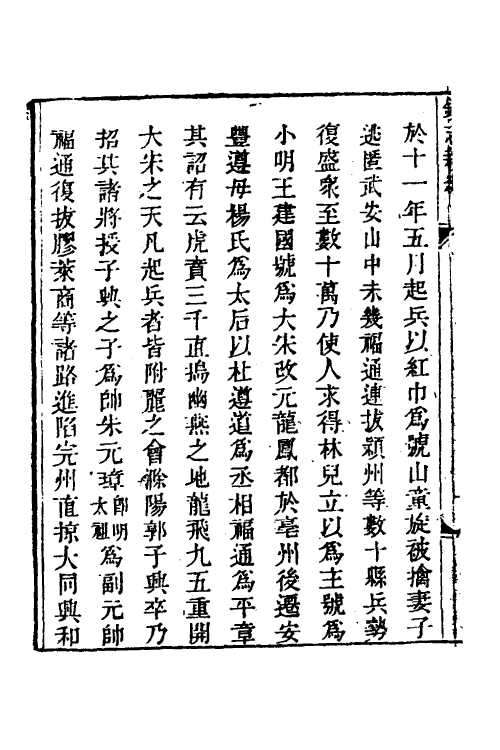 於十一年五月起兵以紅巾爲號山童旋被擒妻子
逃匿武安山中未幾福通連拔潁州等數十縣兵勢
復盛衆至數十萬乃使人求得林兒立以爲主號爲
小明王建國號爲大宋改元龍鳳都於亳州後遷安
豐遵母楊氏爲太后以杜遵道爲丞相福通爲平章
其詔有云虎賁三千直搗幽燕之地龍飛九五重開
大宋之天凡起兵者皆附麗之會滁陽郭子興卒乃
招其諸將授子興之子爲帥朱元璋卽明太祖爲副元帥
福通復拔膠萊商等諸路進陷完州直掠大同興和